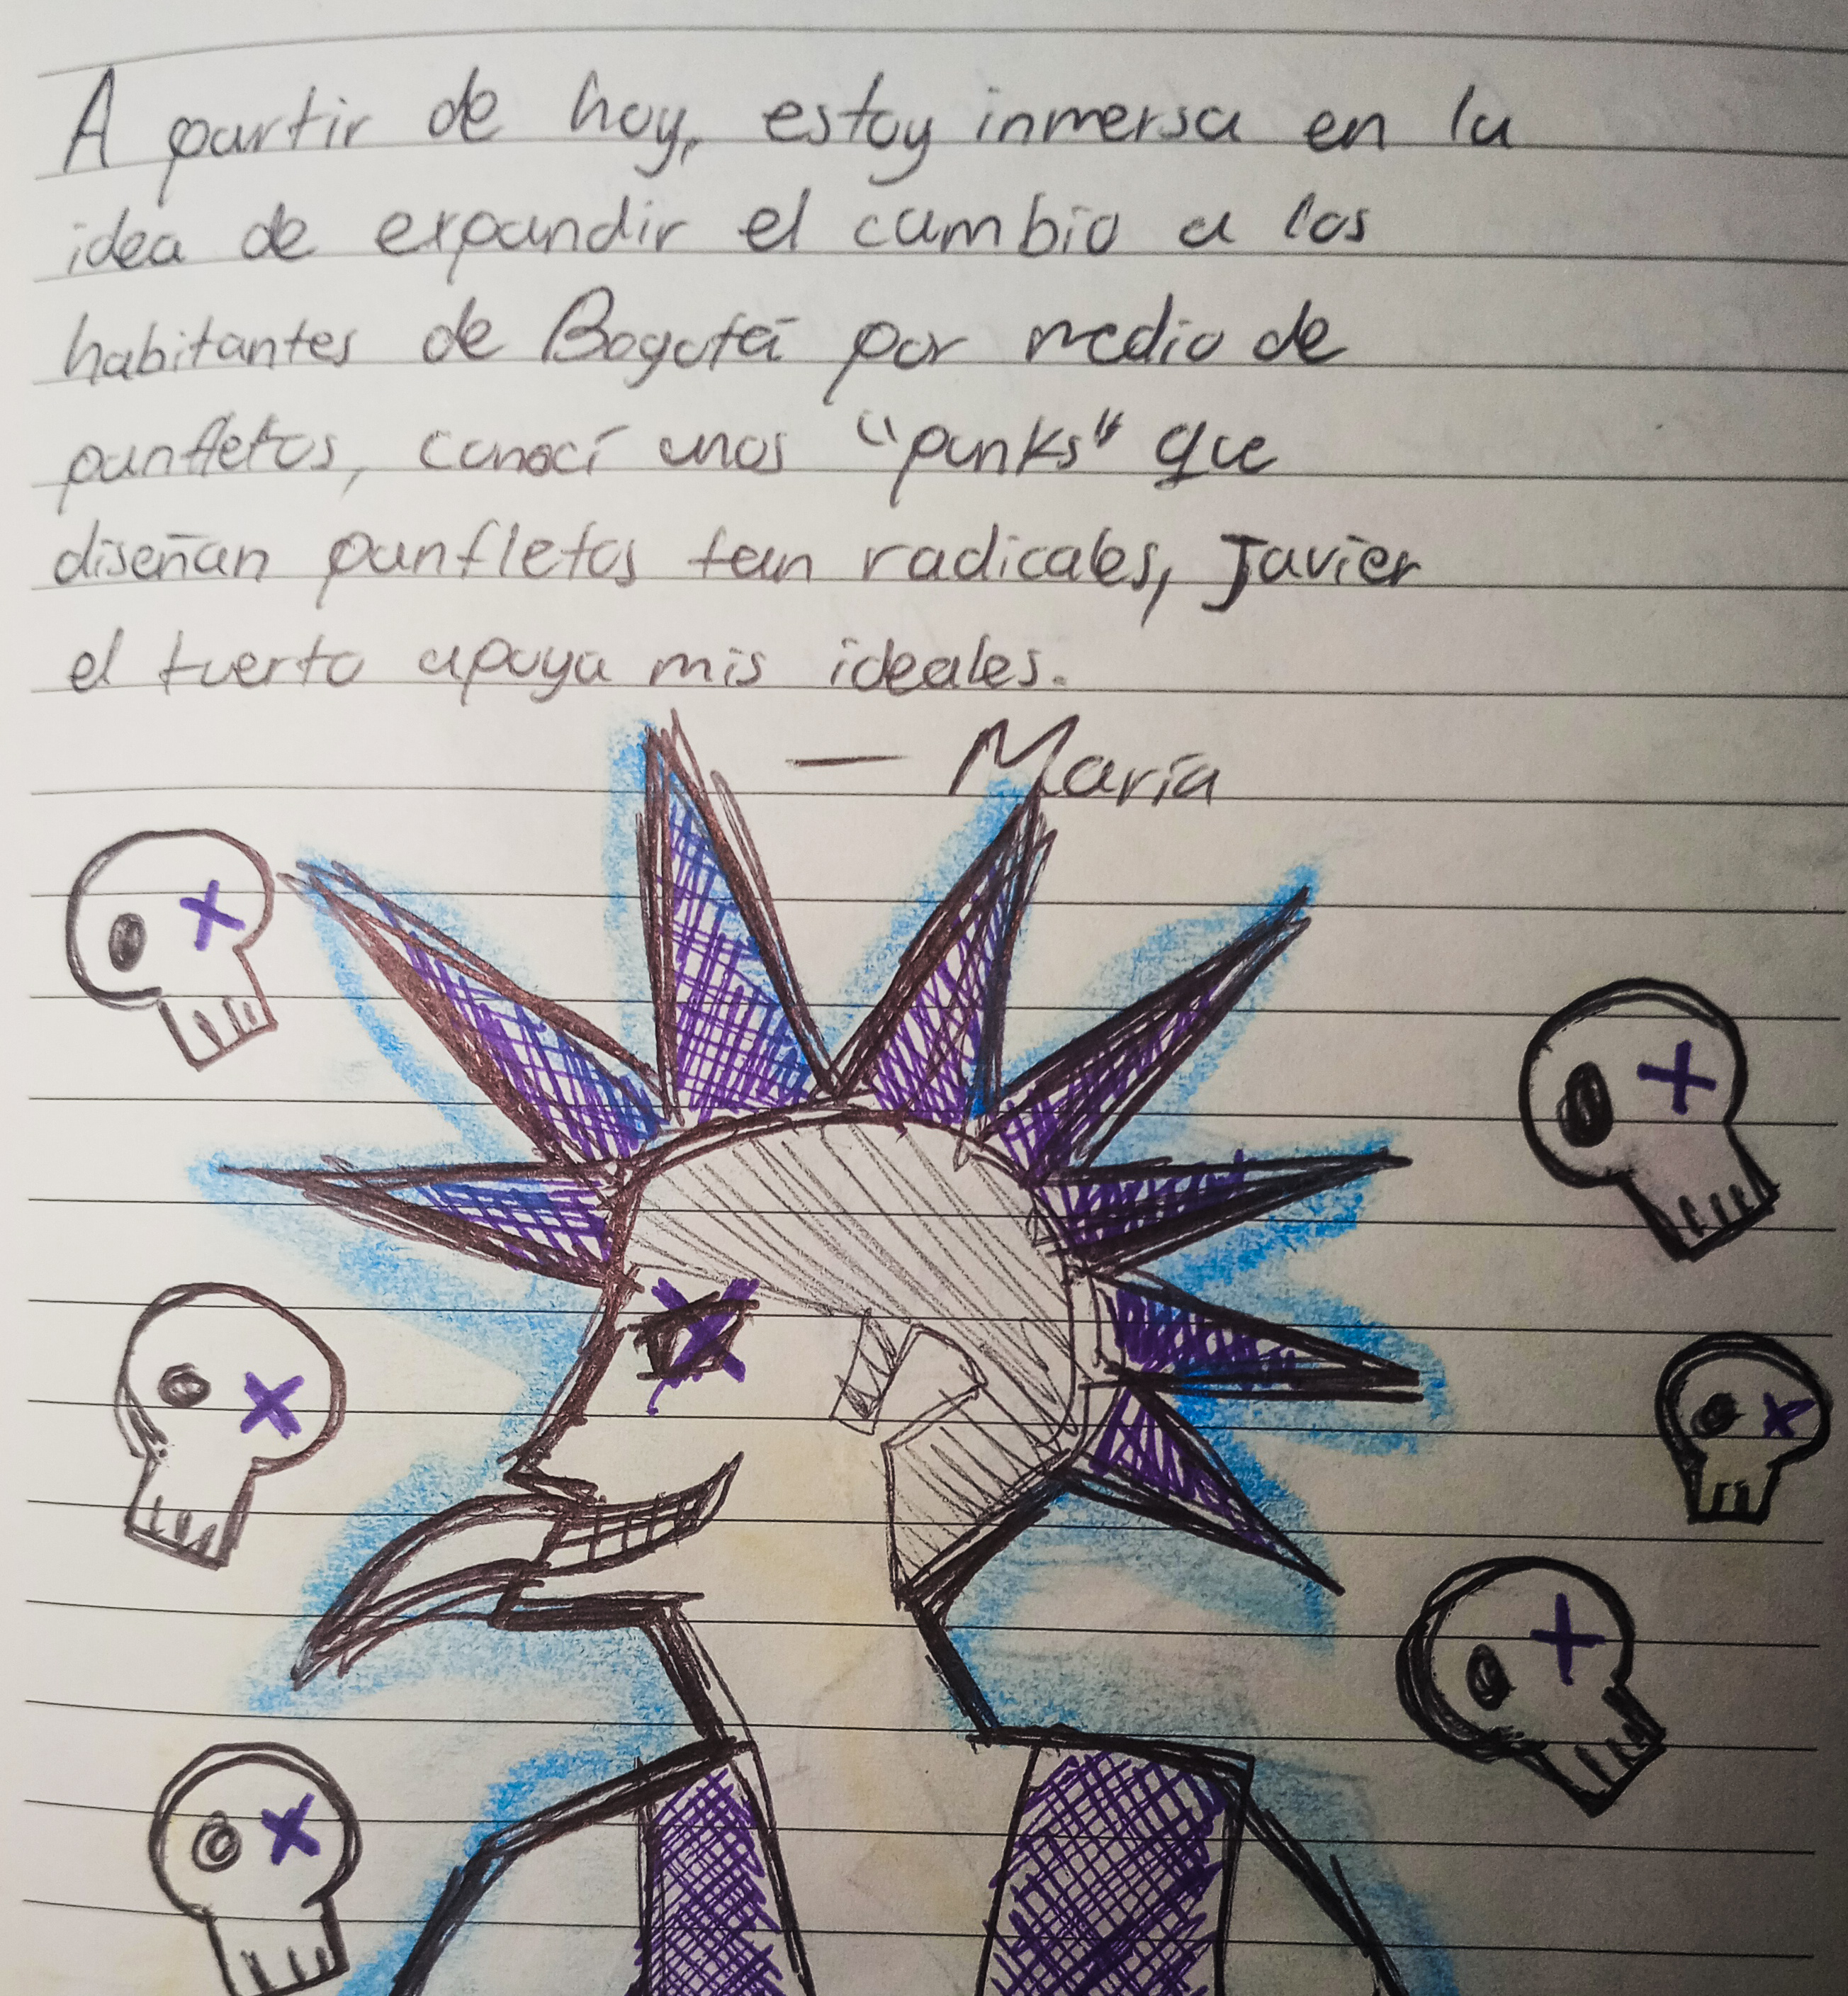 A partir de hoy, estoy inmersa en la
idea de expandir el cambio a los
habitantes de Bogotá por medio de
panfletos, conocí unos "punks" que
diseñan panfletos tan radicales, Javier
el tuerto apoya mis ideales.
— María